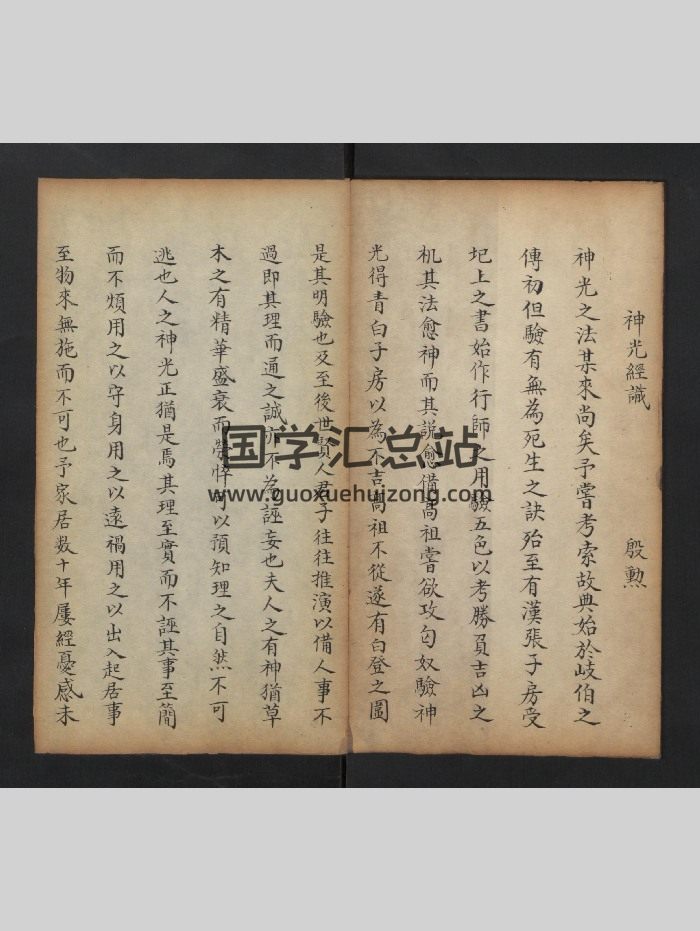 神光經識　殷勲
神光之法某來尚矣予嘗考索故典始於岐伯之
傳初但驗有無為死生之訣殆至有漢張子房受
圯上之書始作行師之用驗五色以考勝負吉凶之
机其法愈神而其説愈備髙祖嘗欲攻匈奴驗神
光得青白子房以為不吉髙祖不從遂有白登之圖
是其明驗也及至後世賢人君子往往推演以備人事不
過即其理而通之誠亦不為誣妄也夫人之有神猶草
木之有精華盛衰而榮悴可以預知理之自然不可
逃也人之神光正猶是焉其理至實而不誣其事至簡
而不煩用之以守身用之以遠禍用之以出入起居事
至物來無施而不可也予家居数十年屢經憂感未
国学汇总站
www.guoxuehuizong.com